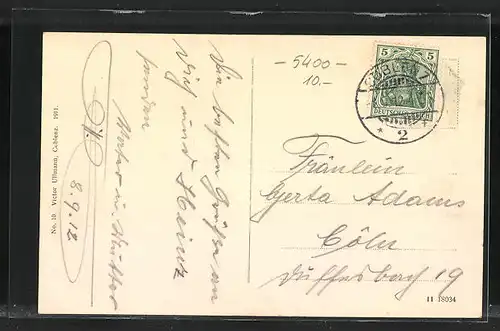 No. 10 Victor Ullmann, Coblenz. 1911.
Die besten Grüße an
Dich und Heinz
senden
Vater u. Mutter
8.9.12
- 5400 -
10.-
5 5
COBLENZ
DEUTSCHES REICH
* 2 *
Fräulein
Gerta Adams
Cöln
Duffesbach 19
11 18034